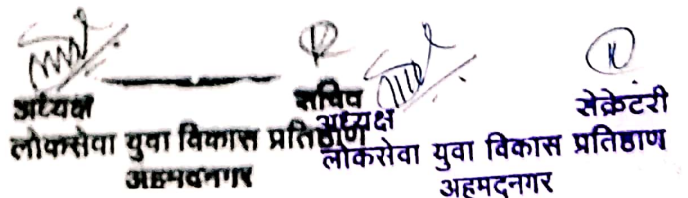 अध्यक्ष सचिव
लोकसेवा युवा विकास प्रतिष्ठाण
अहमदनगर
अध्यक्ष सेक्रेटरी
लोकसेवा युवा विकास प्रतिष्ठाण
अहमदनगर